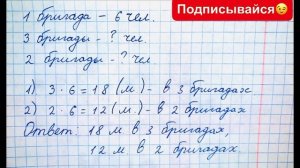 Подписывайся
1 бригада – 6 чел.
3 бригады – ? чел.
2 бригады – ? чел.
1) 3 · 6 = 18 (м) – в 3 бригадах.
2) 2 · 6 = 12 (м) – в 2 бригадах
Ответ: 18 м в 3 бригадах,
12 м в 2 бригадах.